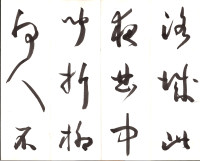 洛城此
夜曲中
聞折柳
何人不